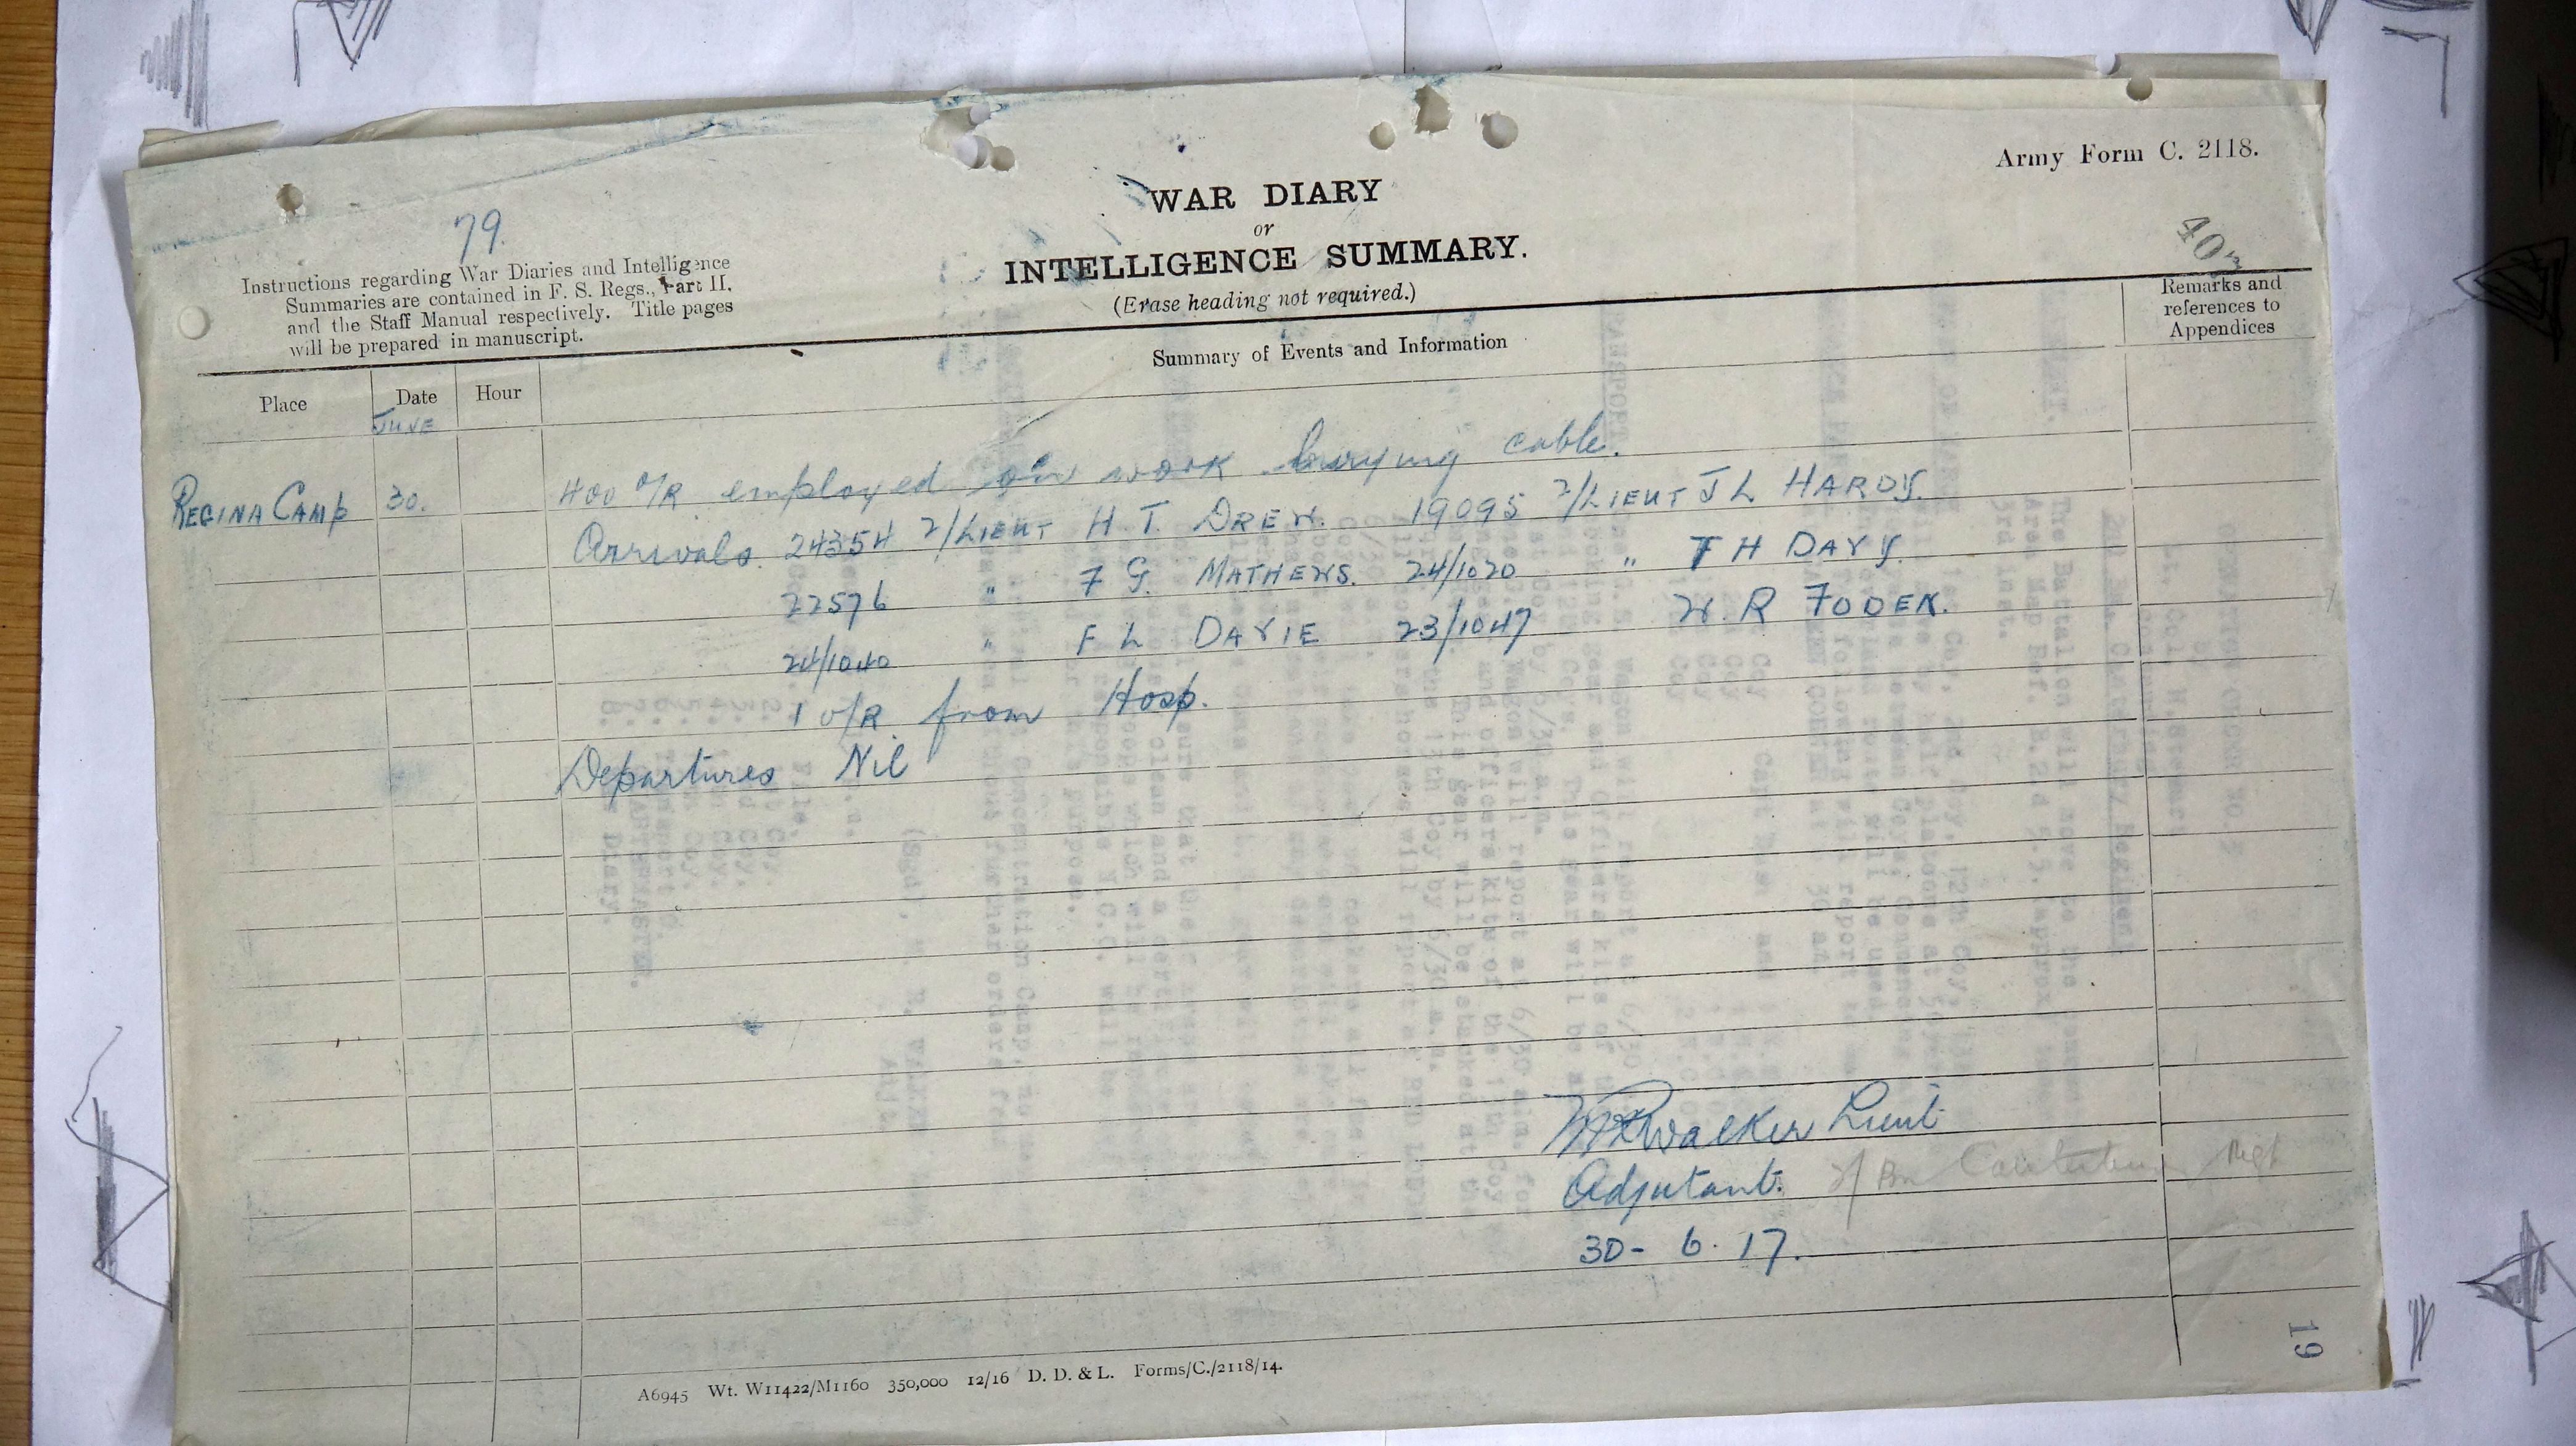 Army Form C. 2118.
79.
WAR DIARY
or
INTELLIGENCE SUMMARY.
(Erase heading not required.)
Instructions regarding War Diaries and Intelligence
Summaries are contained in F. S. Regs., Part II.
and the Staff Manual respectively. Title pages
will be prepared in manuscript.
403
Place
Date
Hour
Summary of Events and Information
Remarks and
references to
Appendices
JUNE
REGINA CAMP 30. 400 O/R employed on work burying cable.
Arrivals. 24354 2/LIEUT H. T. DREW. 19095 2/LIEUT J L HARDY.
22576 " F G. MATHEWS. 24/1020 " T H DAVY.
24/1040 " F L DAVIE 23/1047 W. R FODEN.
1 O/R from Hosp.
Departures Nil
Walker Lieut
Adjutant. 2/ Bn Canterbury Regt
30- 6. 17.
19
A6945 Wt. W11422/M1160 350,000 12/16 D. D. & L. Forms/C./2118/14.